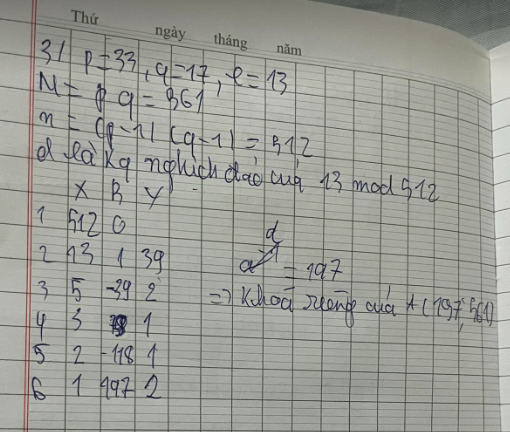 Thứ ngày tháng năm
3/ p=33, q=17, e=13
N = p q = 561
n = (p-1) (q-1) = 512
d là kq nghịch đảo của 13 mod 512
X B Y
1 512 0
2 13 1 39
3 5 -39 2
4 3 79 1
5 2 -118 1
6 1 197 2
d = 197
=> Khoá riêng của A (197, 561)